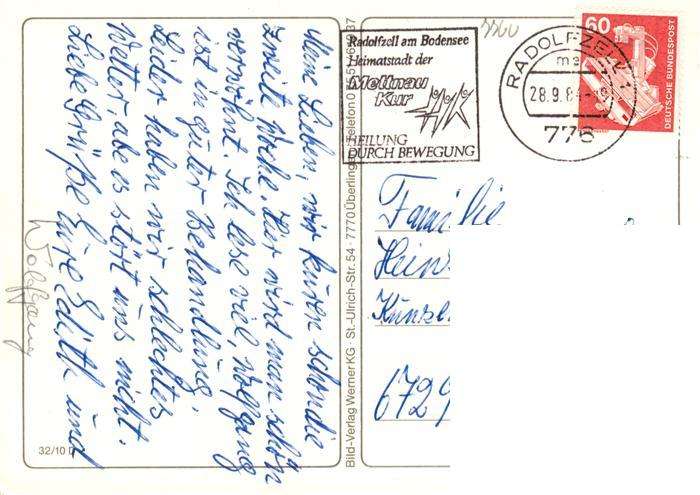 Meine Lieben, wir kuren schon die
zweite Woche. Hier wird man schön
verwöhnt. Ich lese viel, Wolfgang
ist in guter Behandlung.
Leider haben wir schlechtes
Wetter aber es stört uns nicht.
Liebe Grüße Eure Edith und
Wolfgang
32/10 D
Bild-Verlag Werner KG · St.-Ulrich-Str. 54 · 7770 Überlingen
Radolfzell am Bodensee
Heimatstadt der
Mettnau
Kur
HEILUNG
DURCH BEWEGUNG
RADOLFZELL 1
28.9.84
776
60
DEUTSCHE BUNDESPOST
Familie
Hein
6729